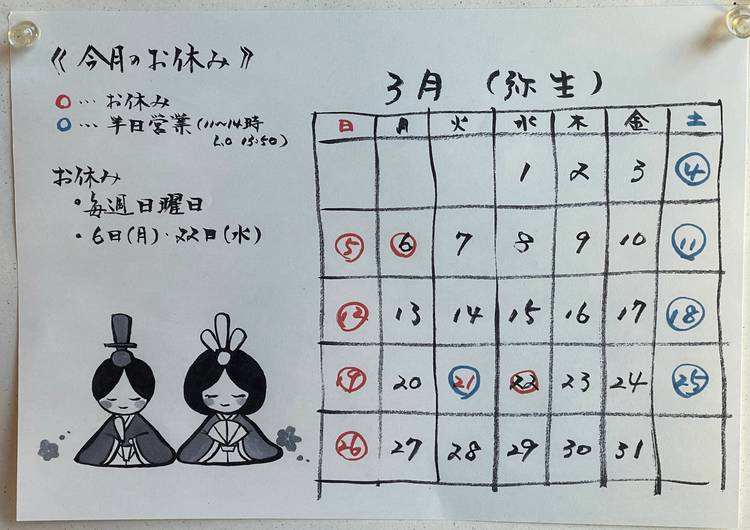 《今月のお休み》
○…お休み
○…半日営業(11〜14時
L.O 13:50)
お休み
・毎週日曜日
・6日(月)・22日(水)
3月(弥生)
日 月 火 水 木 金 土
1 2 3 4
5 6 7 8 9 10 11
12 13 14 15 16 17 18
19 20 21 22 23 24 25
26 27 28 29 30 31